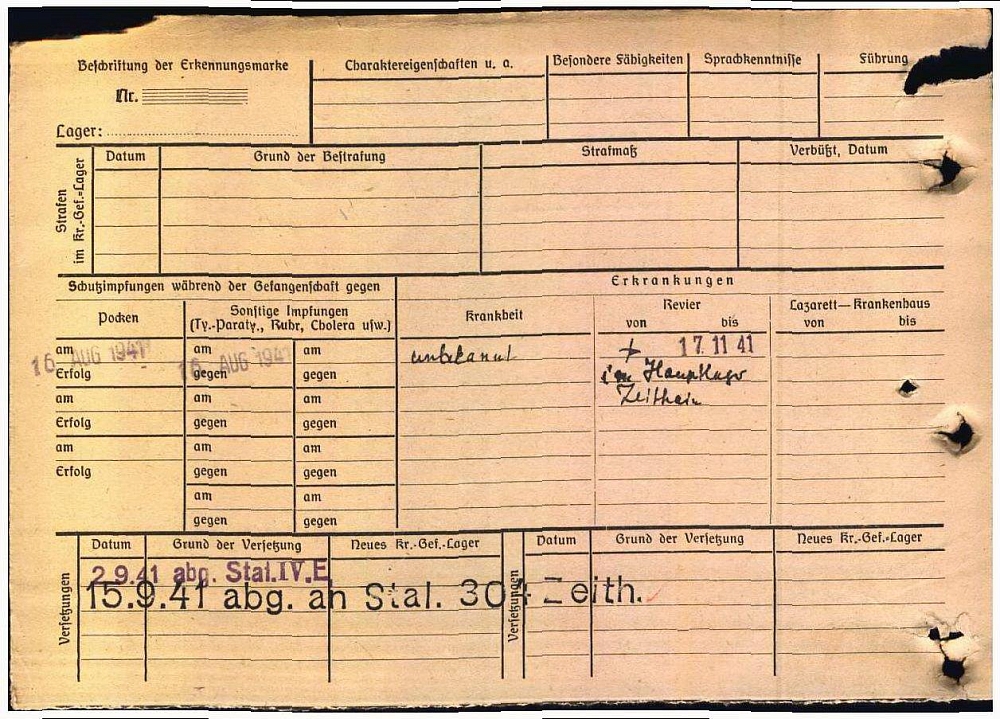 Beschriftung der Erkennungsmarke
Nr.
Lager:
Charaktereigenschaften u. a.
Besondere Fähigkeiten
Sprachkenntnisse
Führung
Strafen im Kr.-Gef.-Lager
Datum
Grund der Bestrafung
Strafmaß
Verbüßt, Datum
Schutzimpfungen während der Gefangenschaft gegen
Erkrankungen
Pocken
Sonstige Impfungen
(Ty.-Paraty., Ruhr, Cholera usw.)
Krankheit
Revier
von bis
Lazarett—Krankenhaus
von bis
am 16. AUG 1941
am 16. AUG 1941
am
unbekannt
+ 17 11 41
Erfolg
gegen
gegen
im Hauptlager
am
am
am
Zeithain
Erfolg
gegen
gegen
am
am
am
Erfolg
gegen
gegen
am
am
gegen
gegen
Versetzungen
Datum
Grund der Versetzung
Neues Kr.-Gef.-Lager
Versetzungen
Datum
Grund der Versetzung
Neues Kr.-Gef.-Lager
2.9.41 abg. Stal.IV.E
15.9.41 abg. an Stal. 304 Zeith.